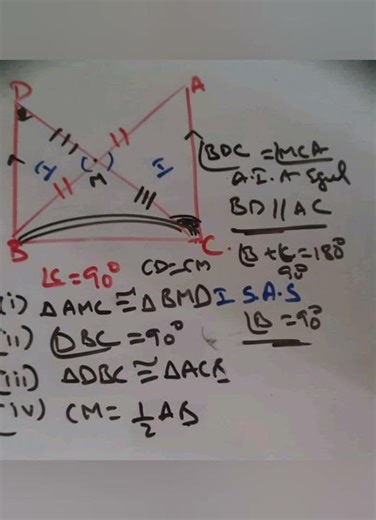 D
A
I
I
M
B
C
∠BDC = ∠MCA
A.I.A equal
BD || AC
∠B + ∠C = 180°
90°
∠B = 90°
∠C = 90°
CD=CM
(i) △AMC ≅ △BMD I S.A.S
(ii) ∠DBC = 90°
(iii) △DBC ≅ △ACB
(iv) CM = 1/2 AB